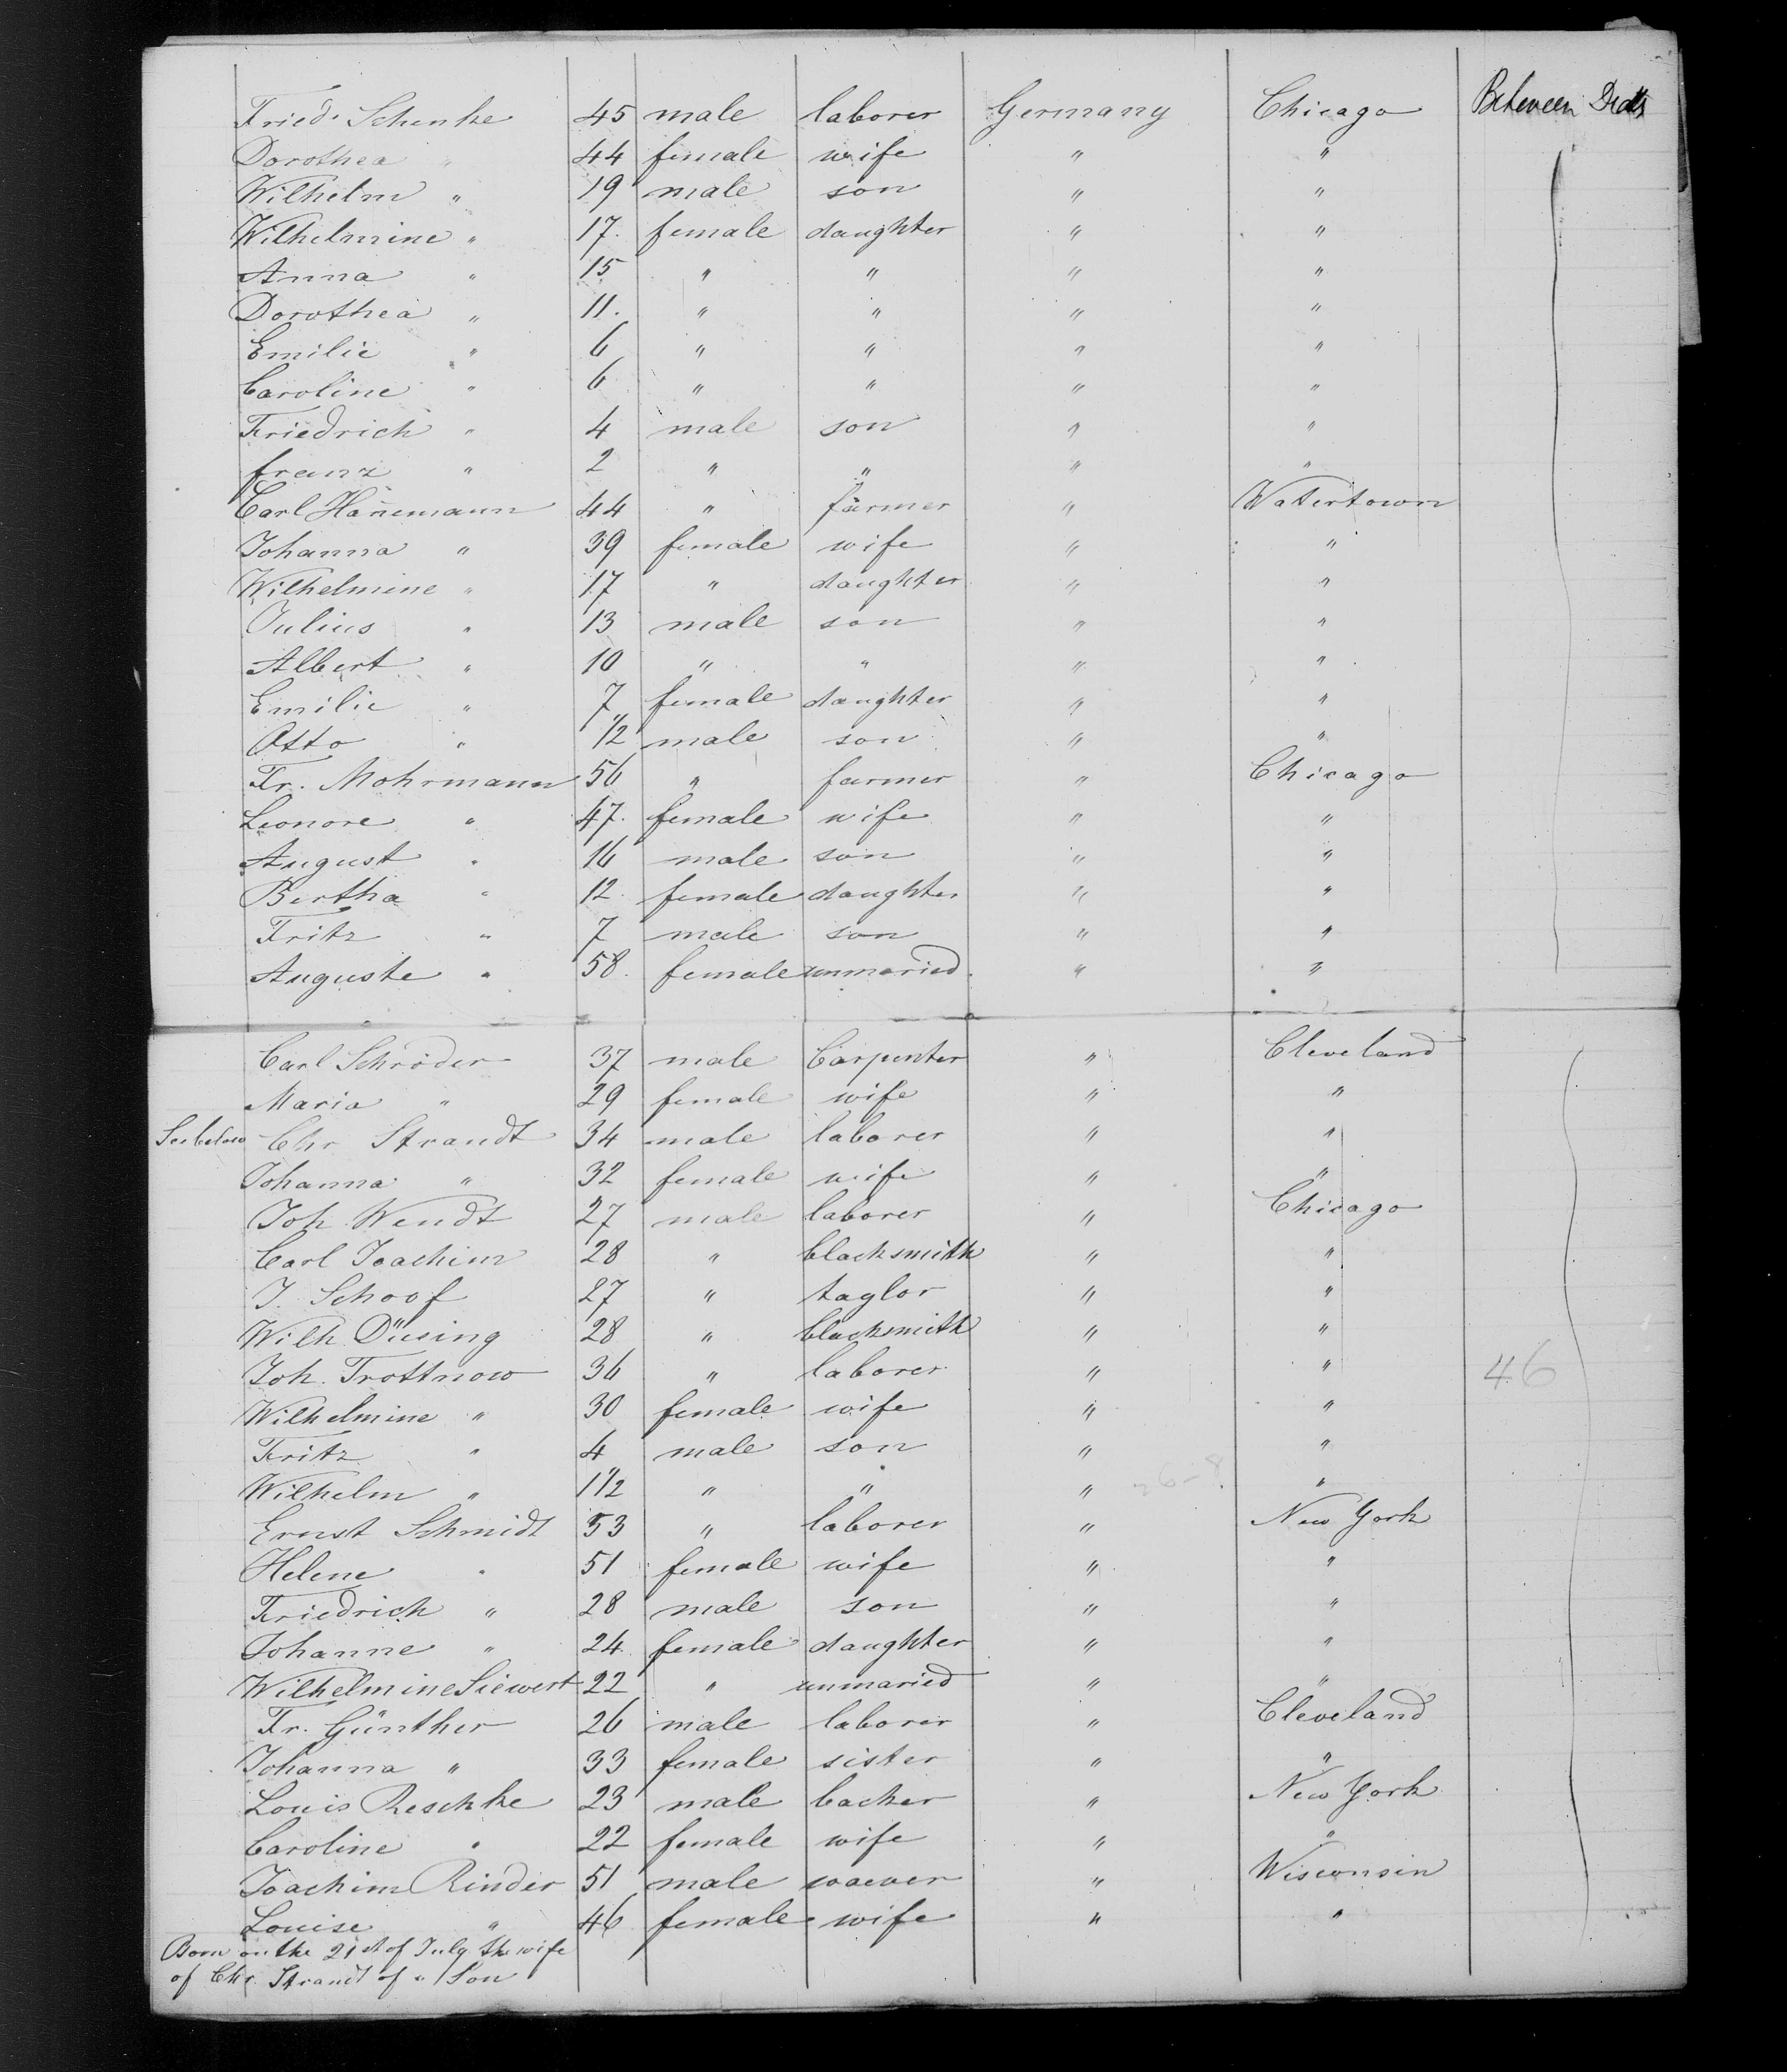 Fried. Schenke 45 male laborer Germany Chicago Between Decks
Dorothea " 44 female wife " "
Wilhelm " 19 male son " "
Wilhelmine " 17. female daughter " "
Anna " 15 " " " "
Dorothea " 11. " " " "
Emilie " 6 " " " "
Caroline " 6 " " " "
Friedrich " 4 male son " "
franz " 2 " " " "
Carl Hanemann 44 " farmer " Watertown
Johanna " 39 female wife " "
Wilhelmine " 17 " daughter " "
Julius " 13 male son " "
Albert " 10 " " " "
Emilie " 7 female daughter " "
Otto " 1/2 male son " "
Fr. Mohrmann 56 " farmer " Chicago
Leonore " 47. female wife " "
August " 16 male son " "
Bertha " 12 female daughter " "
Fritz " 7 male son " "
Auguste " 58. female unmaried " "
Carl Schröder 37 male Carpenter " Cleveland
Maria " 29 female wife " "
See below Chr Strandt 34 male laborer " "
Johanna " 32 female wife " "
Joh. Wendt 27 male laborer " Chicago
Carl Joachim 28 " blacksmith " "
J. Schoof 27 " taylor " "
Wilh Düsing 28 " blacksmith " "
Joh. Trottnow 36 " laborer " " 46
Wilhelmine " 30 female wife " "
Fritz " 4 male son " "
Wilhelm " 1 1/2 " " " "
Ernst Schmidt 53 " laborer " New York
Helene " 51 female wife " "
Friedrich " 28 male son " "
Johanne " 24 female daughter " "
Wilhelmine Siewert 22 " unmaried " "
Fr. Günther 26 male laborer " Cleveland
Johanna " 33 female sister " "
Louis Reschke 23 male backer " New York
Caroline " 22 female wife " "
Joachim Rinder 51 male waever " Wisconsin
Louise " 46 female wife " "
Born on the 21st of July the wife
of Chr. Strandt of a Son